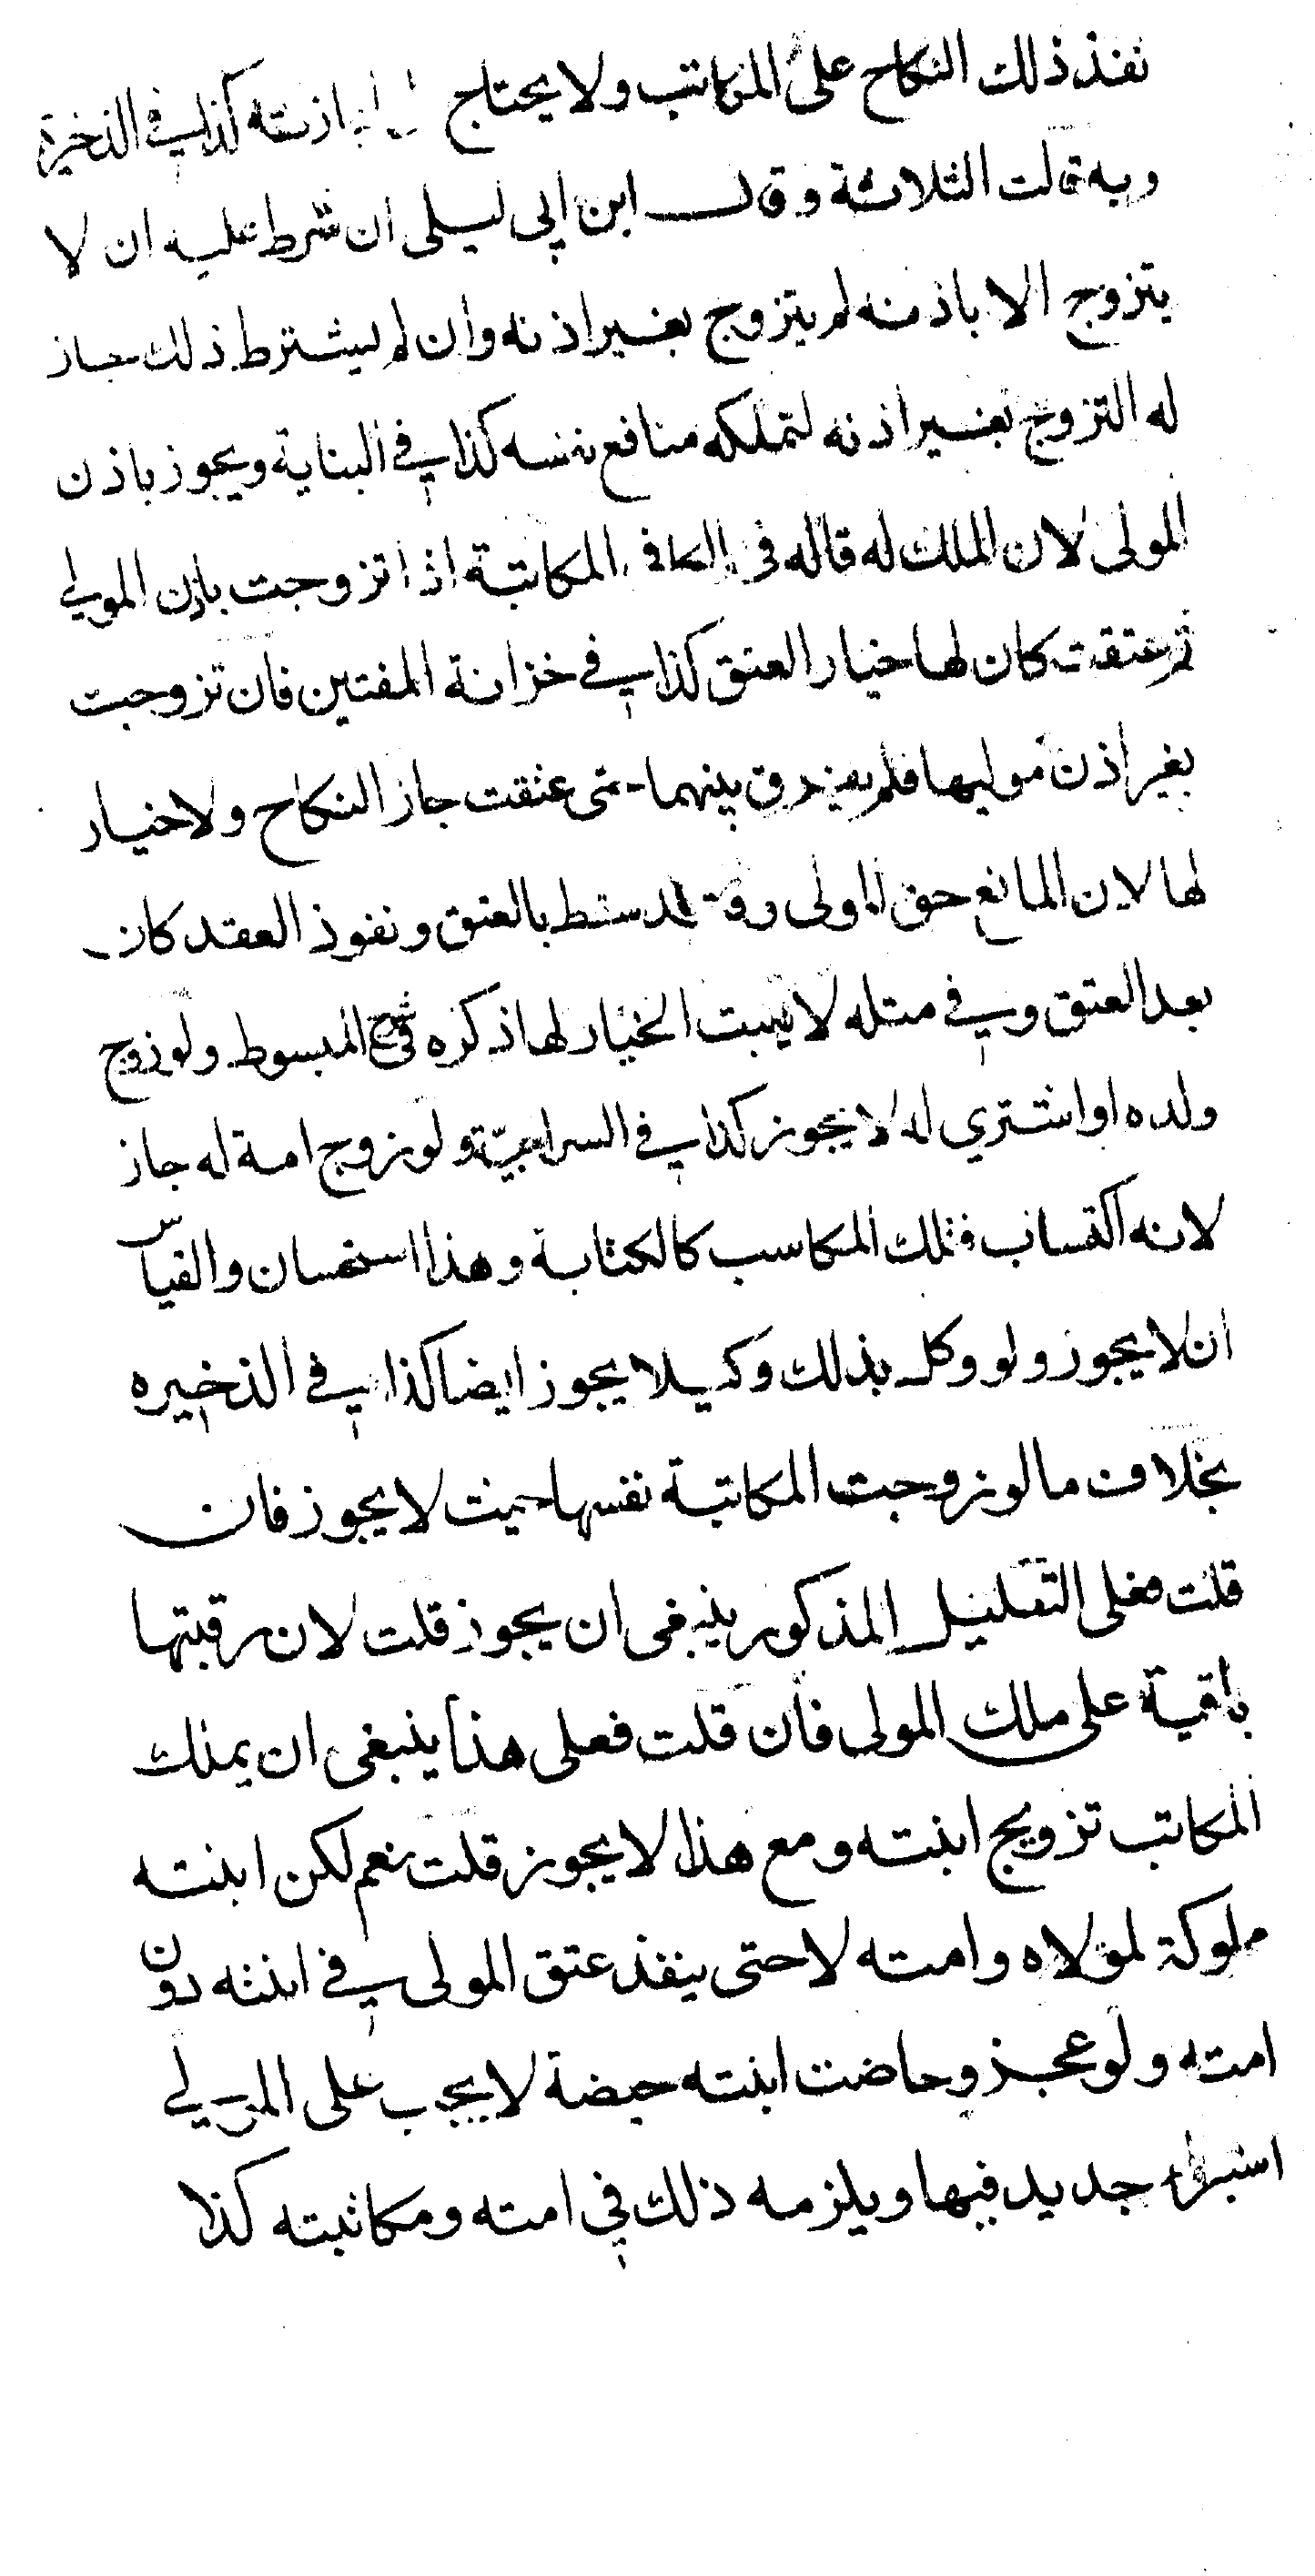 نفذ ذلك النكاح على المكاتب ولا يحتاج اجازته كذا في الذخيرة
وبه قالت الثلاثة وقال ابن ابي ليلى ان شرط عليه ان لا
يتزوج الا باذنه لم يتزوج بغير اذنه وان لم يشترط ذلك جاز
له التزوج بغير اذنه لتملكه منافع نفسه كذا في البناية ويجوز باذن
المولى لان الملك له قاله في الكافي المكاتبة اذا تزوجت باذن المولي
ثم عتقت كان لها خيار العتق كذا في خزانة المفتين فان تزوجت
بغير اذن موليها فلم يفرق بينهما حتى عتقت جاز النكاح ولا خيار
لها لان المانع حق المولى وقد سقط بالعتق ونفوذ العقد كان
بعد العتق وفي مثله لا يثبت الخيار لها ذكره في شرح المبسوط ولو زوج
ولده او اشتري له لا يجوز كذا في السراجية ولو زوج امة له جاز
لانه اكتساب فتملك المكاسب كالكتابة وهذا استحسان والقياس
ان لا يجوز ولو وكل بذلك وكيلا يجوز ايضا كذا في الذخيره
بخلاف ما لو زوجت المكاتبة نفسها حيث لا يجوز فان
قلت فعلى التعليل المذكور ينبغي ان يجوز قلت لان رقبتها
باقية على ملك المولى فان قلت فعلى هذا ينبغي ان يملك
المكاتب تزويج ابنته ومع هذا لا يجوز قلت نعم لكن ابنته
مملوكة لمولاه وامته لا حتى ينفذ عتق المولى في ابنته دون
امته ولو عجز وحاضت ابنته حيضة لا يجب على المولي
استبراء جديد فيها ويلزمه ذلك في امته ومكاتبته كذا